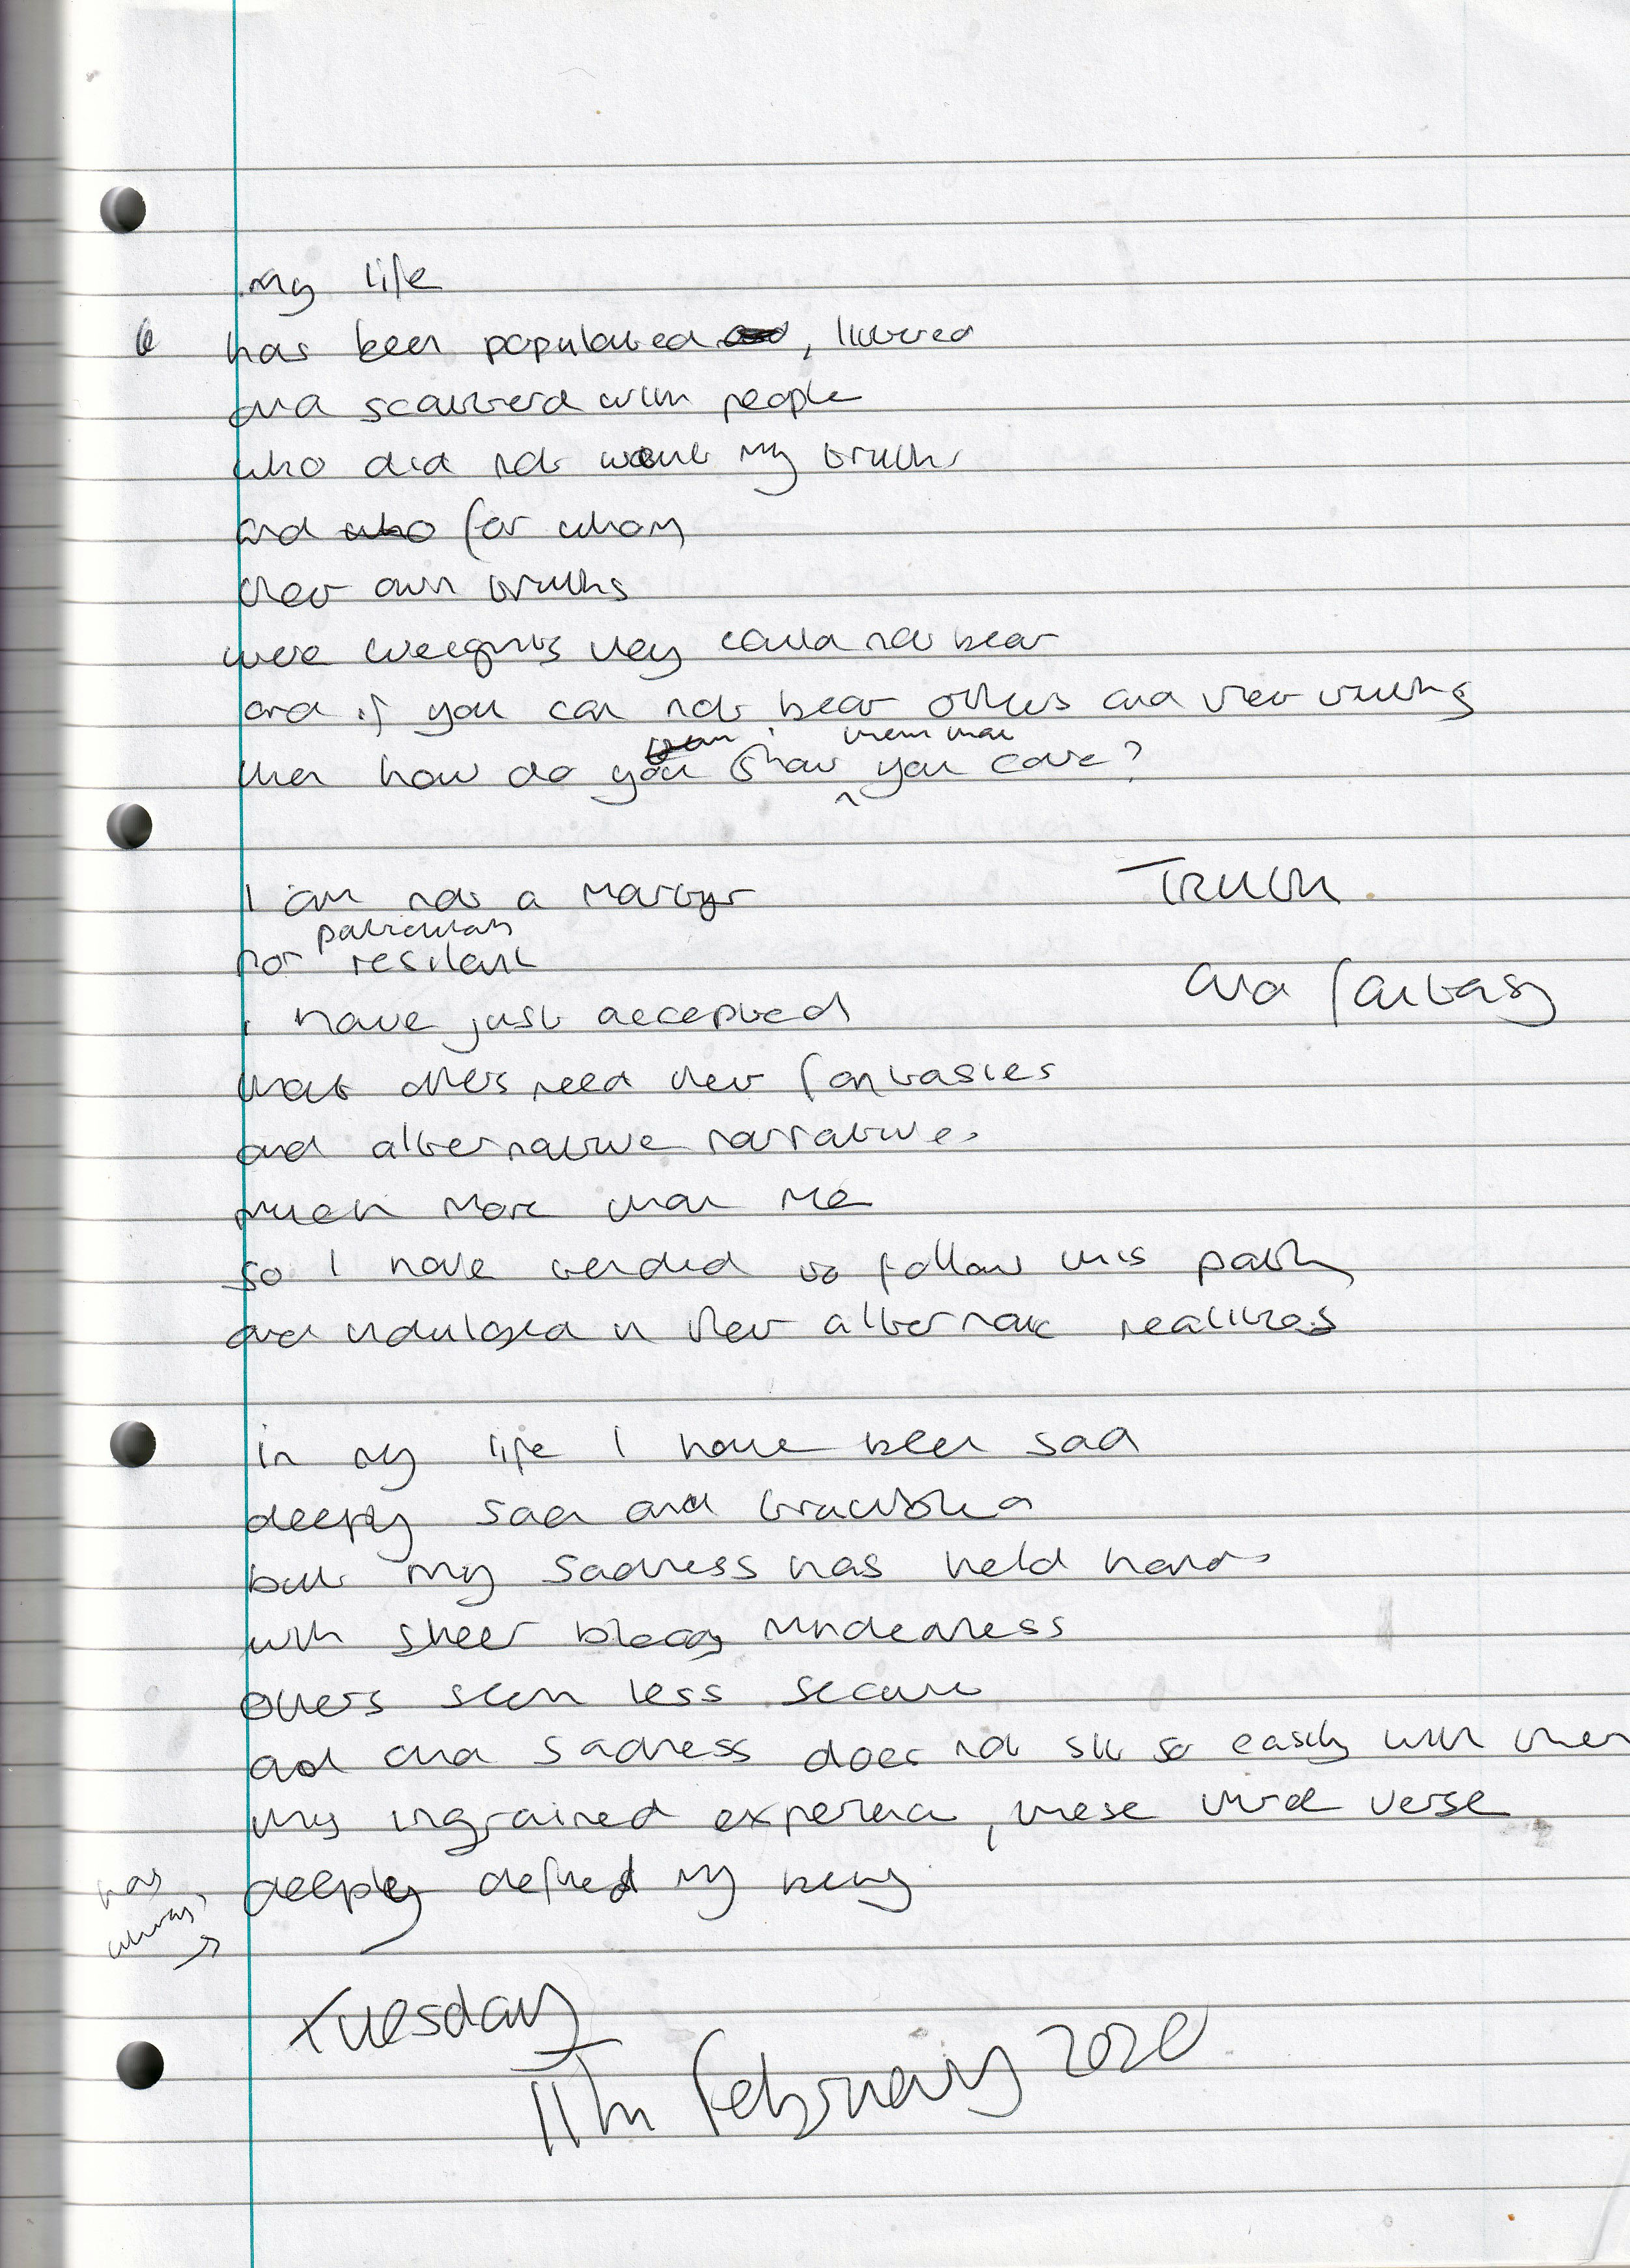 my life
has been populated, littered
and scattered with people
who did not want my truths
and who for whom
their own truths
were weights they could not bear
and if you can not bear others and their truths
them that
then how do you show you care?
I am not a martyr
Truth
particularly
nor resilient
and fantasy
I have just accepted
that others need their fantasies
and alternative narratives
much more than me
so I have tended to follow this path
and indulged in their alternate realities
in my life I have been sad
deeply sad and
but my sadness has held hands
with sheer bloody mindedness
others seem less secure
and and sadness does not sit so easily with them
this ingrained experience, these third verse
has
always
deeply defined my being
Tuesday
11th February 2020